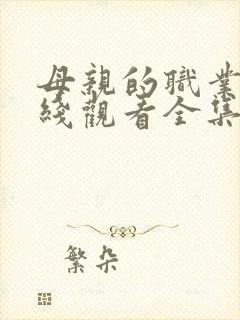 母親的職業
綫觀看全集
繁朵